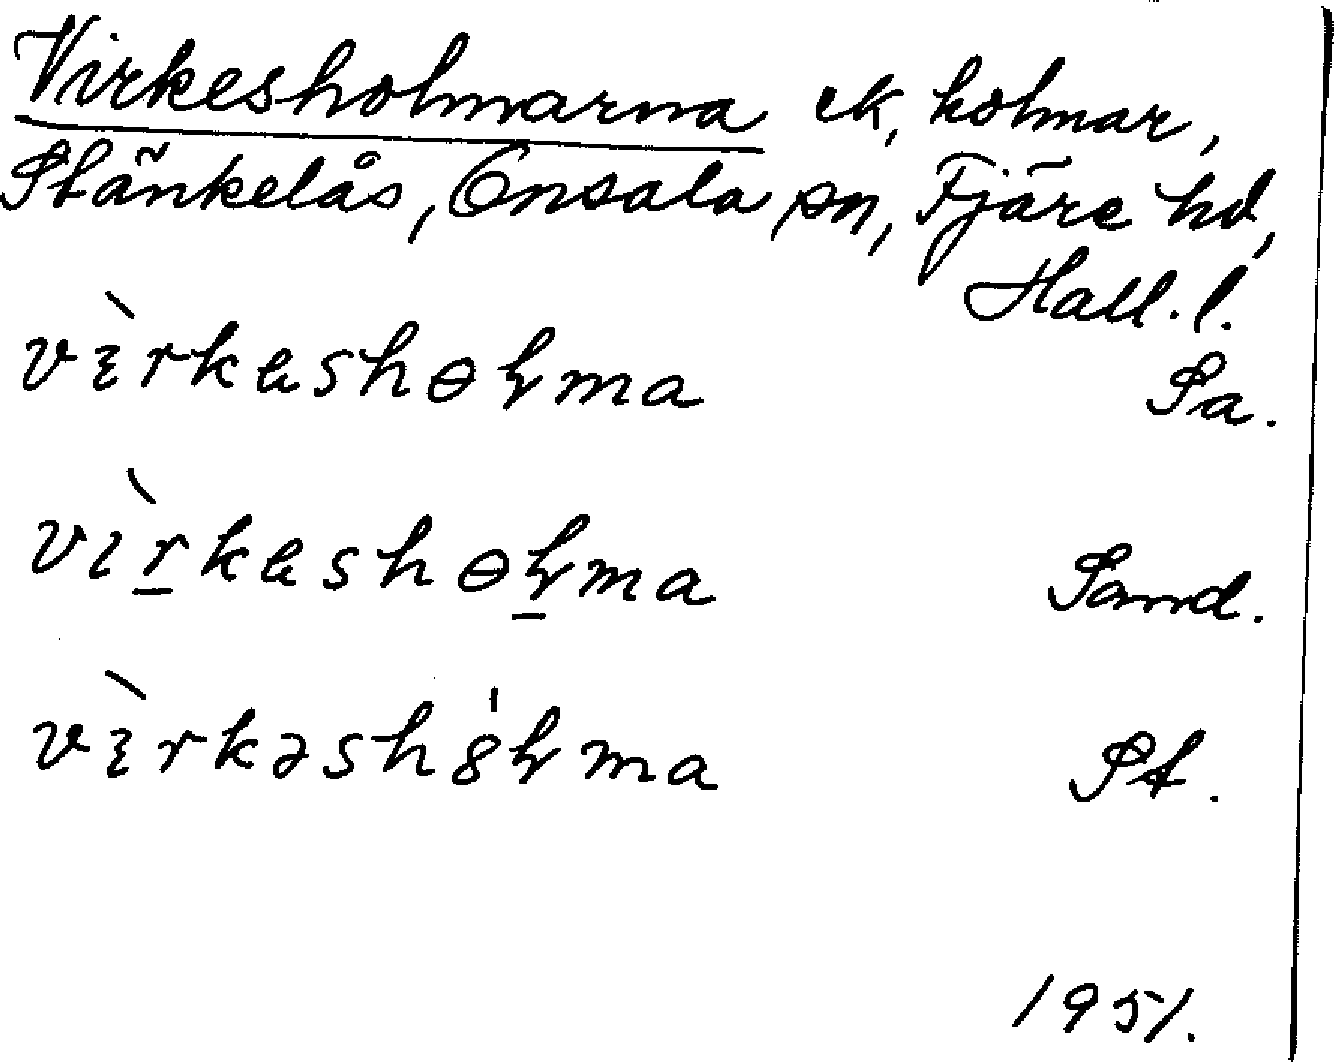 Virkesholmarna ek, holmar,
Stänkelås, Onsala sn, Fjäre hd,
Hall. l.
vìrkesholma Sa.
vìrkesholma Sand.
vìrkəshölma St.
1951.